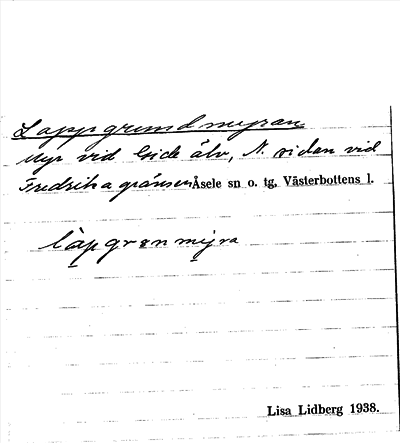 Lappgrundmyran
Myr vid Gide älv, N. sidan vid
Fredrika gränsen Åsele sn o. tg, Västerbottens l.
làpgrønmỳra
Lisa Lidberg 1938.